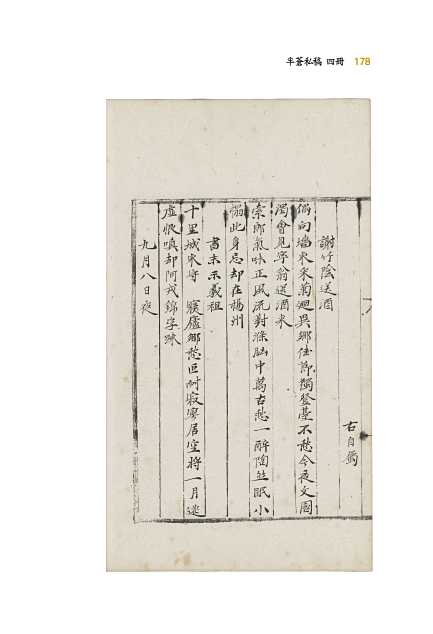 半蒼私稿 四冊 178
右自
謝竹陰送酒
偶向墻東采菊迴異鄉佳節獨登臺不愁今夜文園
渴會見寧翁送酒來
索郎氣味正風流對滌胸中萬古愁一醉陶然眠小
榻此身忘却在楊州
書末示羲祖
十里城東守 寢廬鄉愁叵耐寂寥居空將一月
虛恨嗔却阿戎錦字疎
九月八日夜